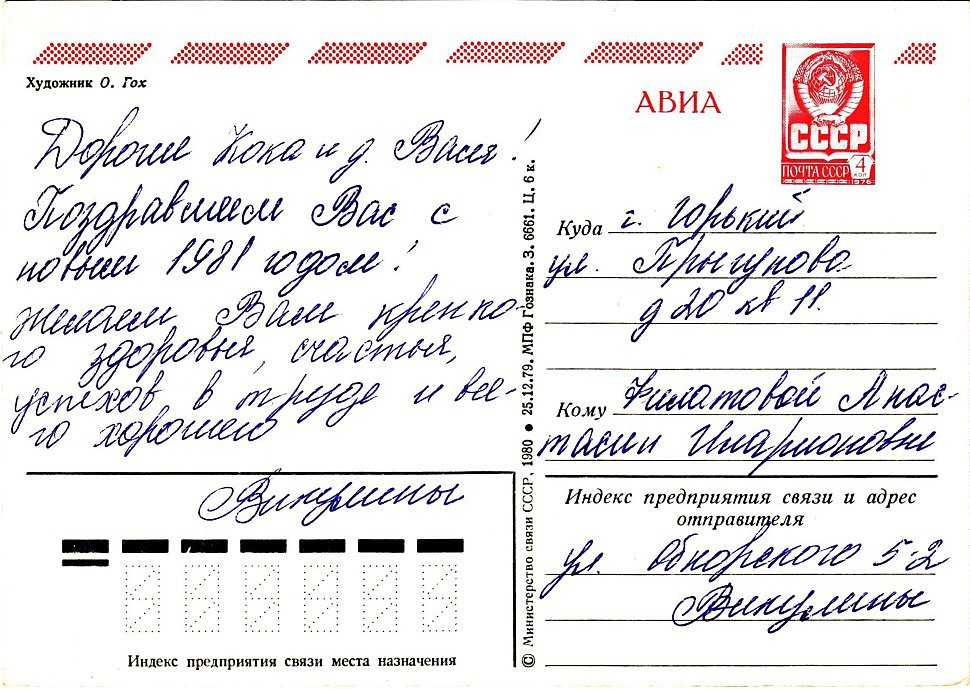 Художник О. Гох
Дорогие Кока и д. Вася!
Поздравляем Вас с
новым 1981 годом!
желаем Вам крепко-
го здоровья, счастья,
успехов в труде и все-
го хорошего
Викулины
Индекс предприятия связи места назначения
© Министерство связи СССР, 1980 ● 25.12.79. МПФ Гознака. З. 6661. Ц. 6 к.
АВИА
СССР
ПОЧТА СССР
4
КОП
1976
Куда г. Горький
ул. Прыгунова
д 20 кв 11.
Кому Филатовой Анас-
тасии Иларионовне
Индекс предприятия связи и адрес
отправителя
ул. Обнорского 5-2
Викулины